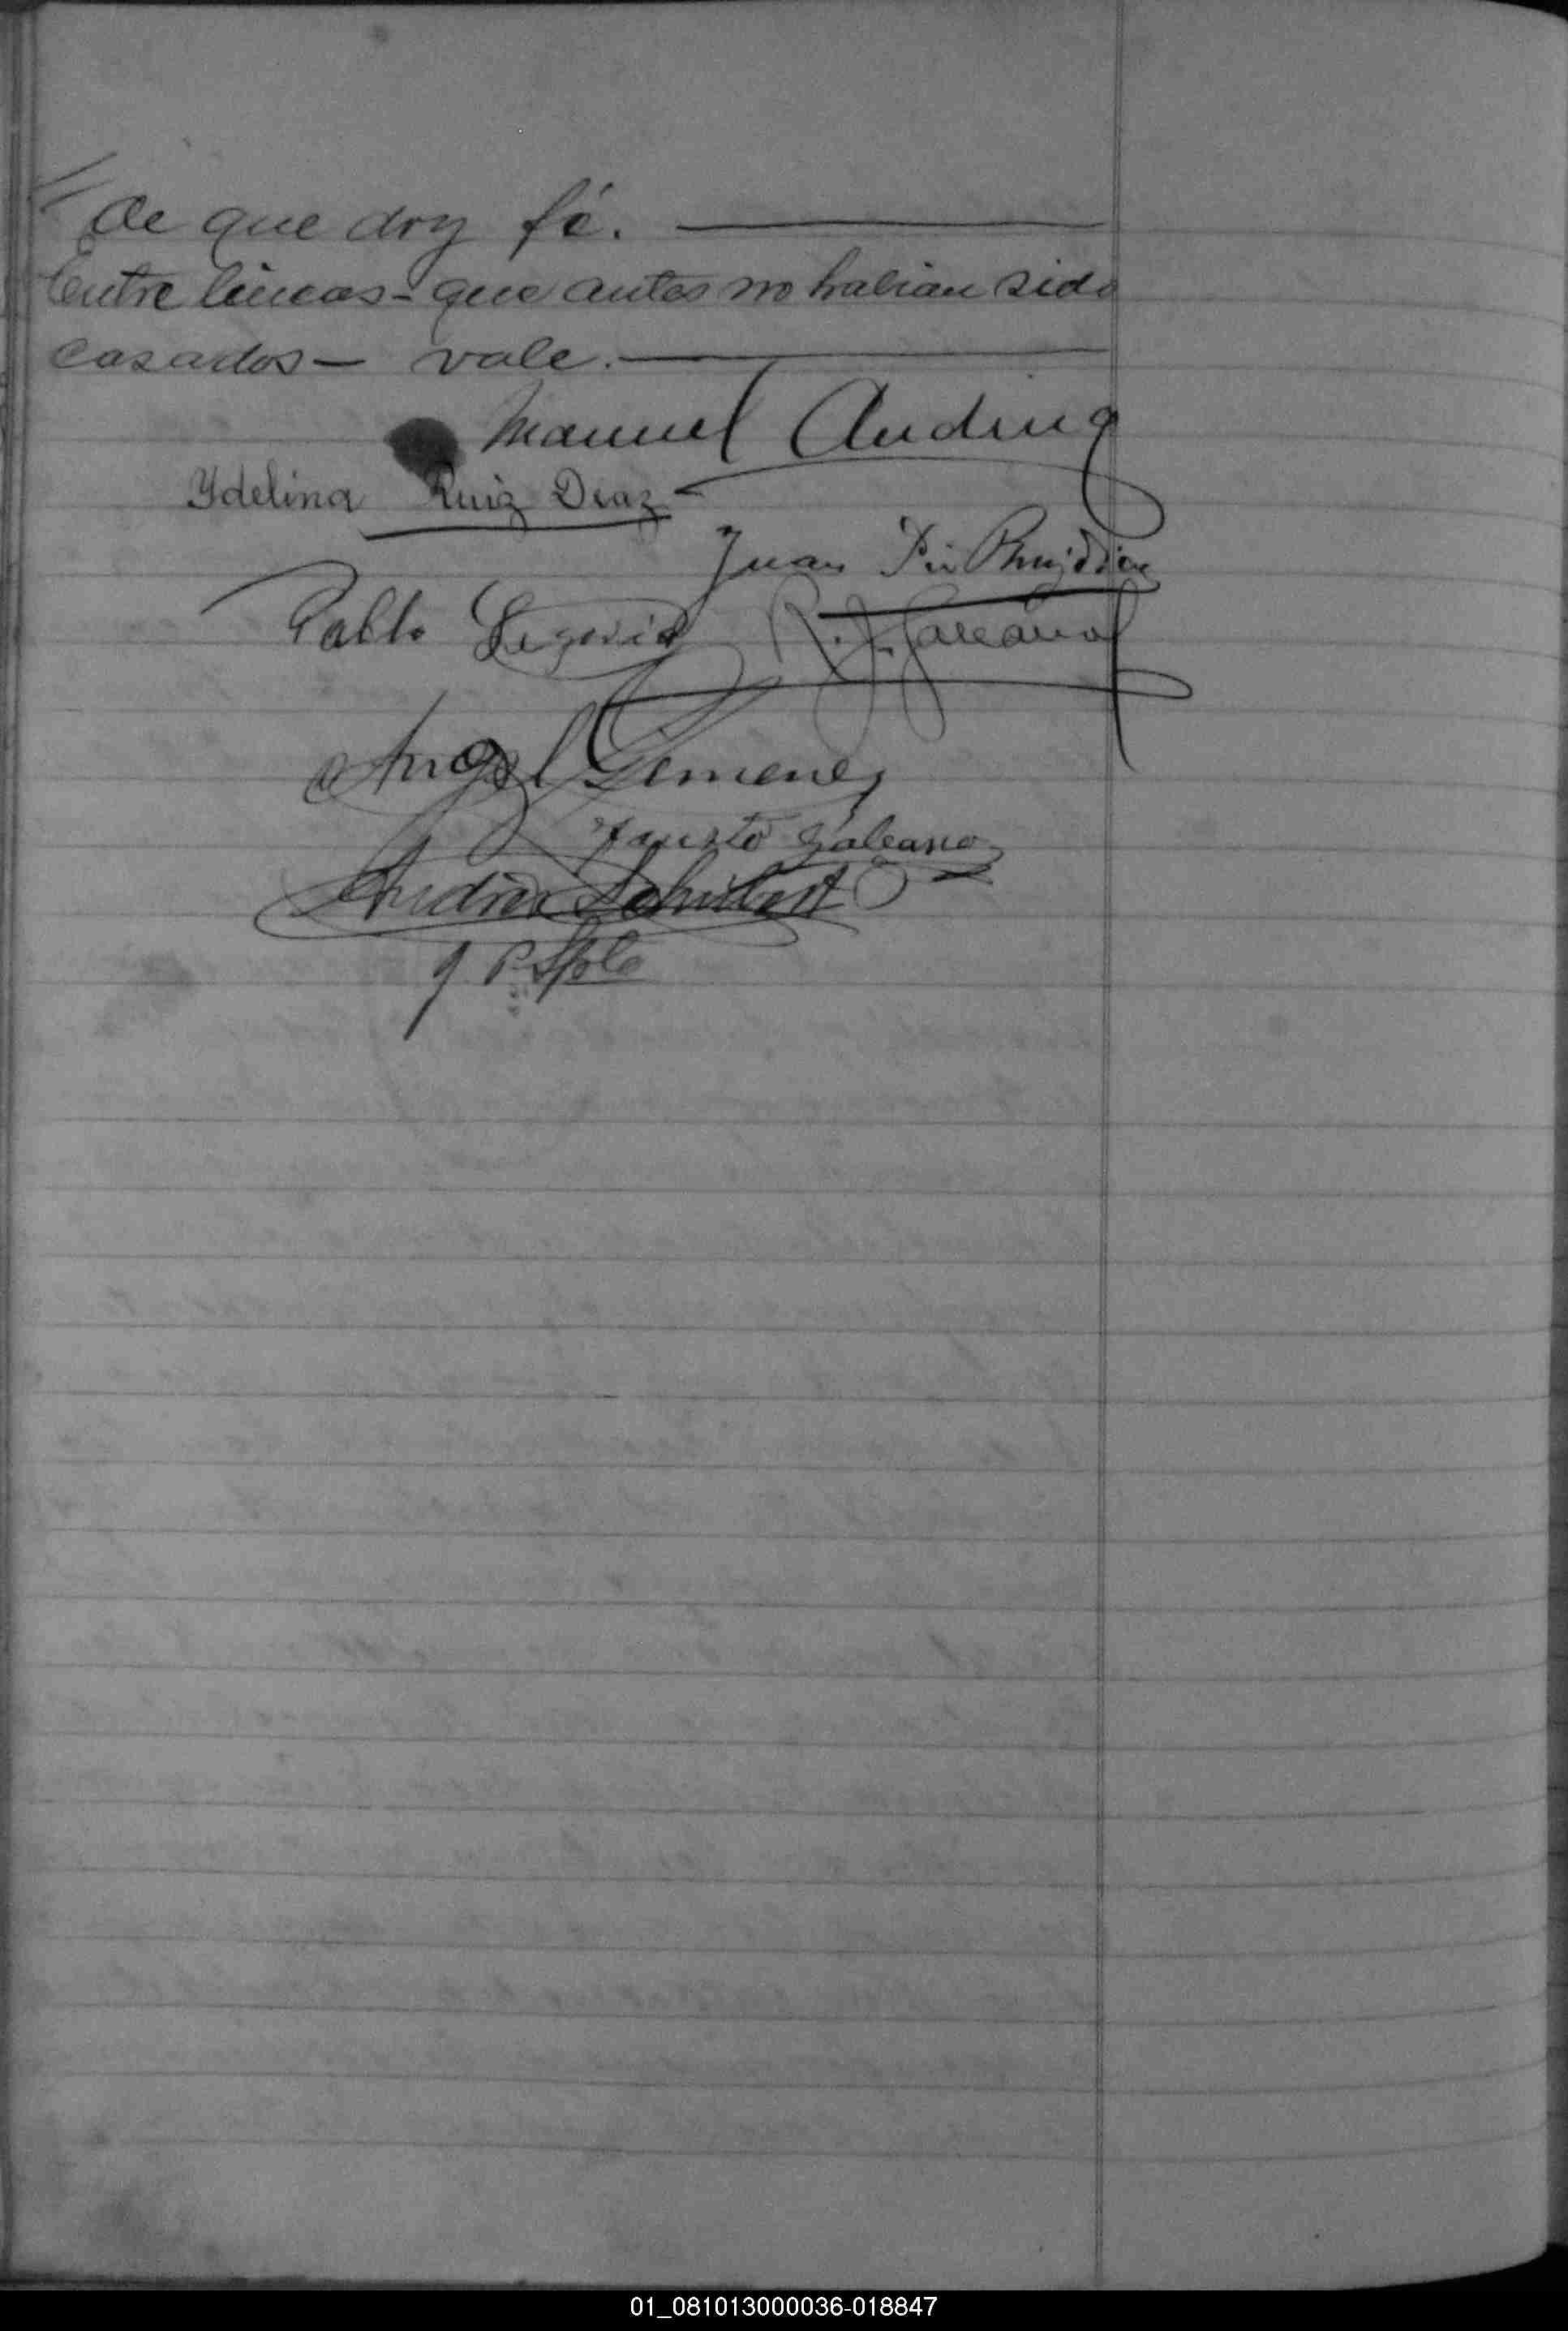 de que doy fé.
Entre lineas - que antes no habian sido
casados - vale.
Manuel Andino
Ydelina Ruiz Diaz
Juan Ruiz Diaz
Pablo Segovia R. J. Galeano
Angel Gimenez
Fausto Galeano
Andres Schubert
01_081013000036-018847